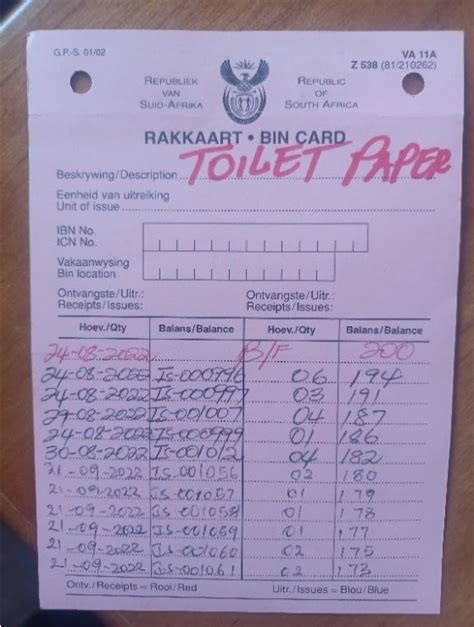 G.P.-S. 01/02
VA 11A
Z 538 (81/210262)
REPUBLIEK VAN SUID-AFRIKA
REPUBLIC OF SOUTH AFRICA
RAKKAART • BIN CARD
Beskrywing/Description TOILET PAPER
Eenheid van uitreiking
Unit of issue
IBN No.
ICN No.
Vakaanwysing
Bin location
Ontvangste/Uitr.: Ontvangste/Uitr.:
Receipts/Issues: Receipts/Issues:
Hoev./Qty Balans/Balance Hoev./Qty Balans/Balance
24-08-2022 B/F 200
24-08-2022 IS-000996 06 194
24-08-2022 IS-000997 03 191
29-08-2022 IS-001007 04 187
24-08-2022 IS-000999 01 186
30-08-2022 IS-001012 04 182
21-09-2022 IS-001056 02 180
21-09-2022 IS-001057 01 179
21-09-2022 IS-001058 01 178
21-09-2022 IS-001059 01 177
21-09-2022 IS-001060 02 175
21-09-2022 IS-001061 02 173
Ontv./Receipts = Rooi/Red Uitr./Issues = Blou/Blue